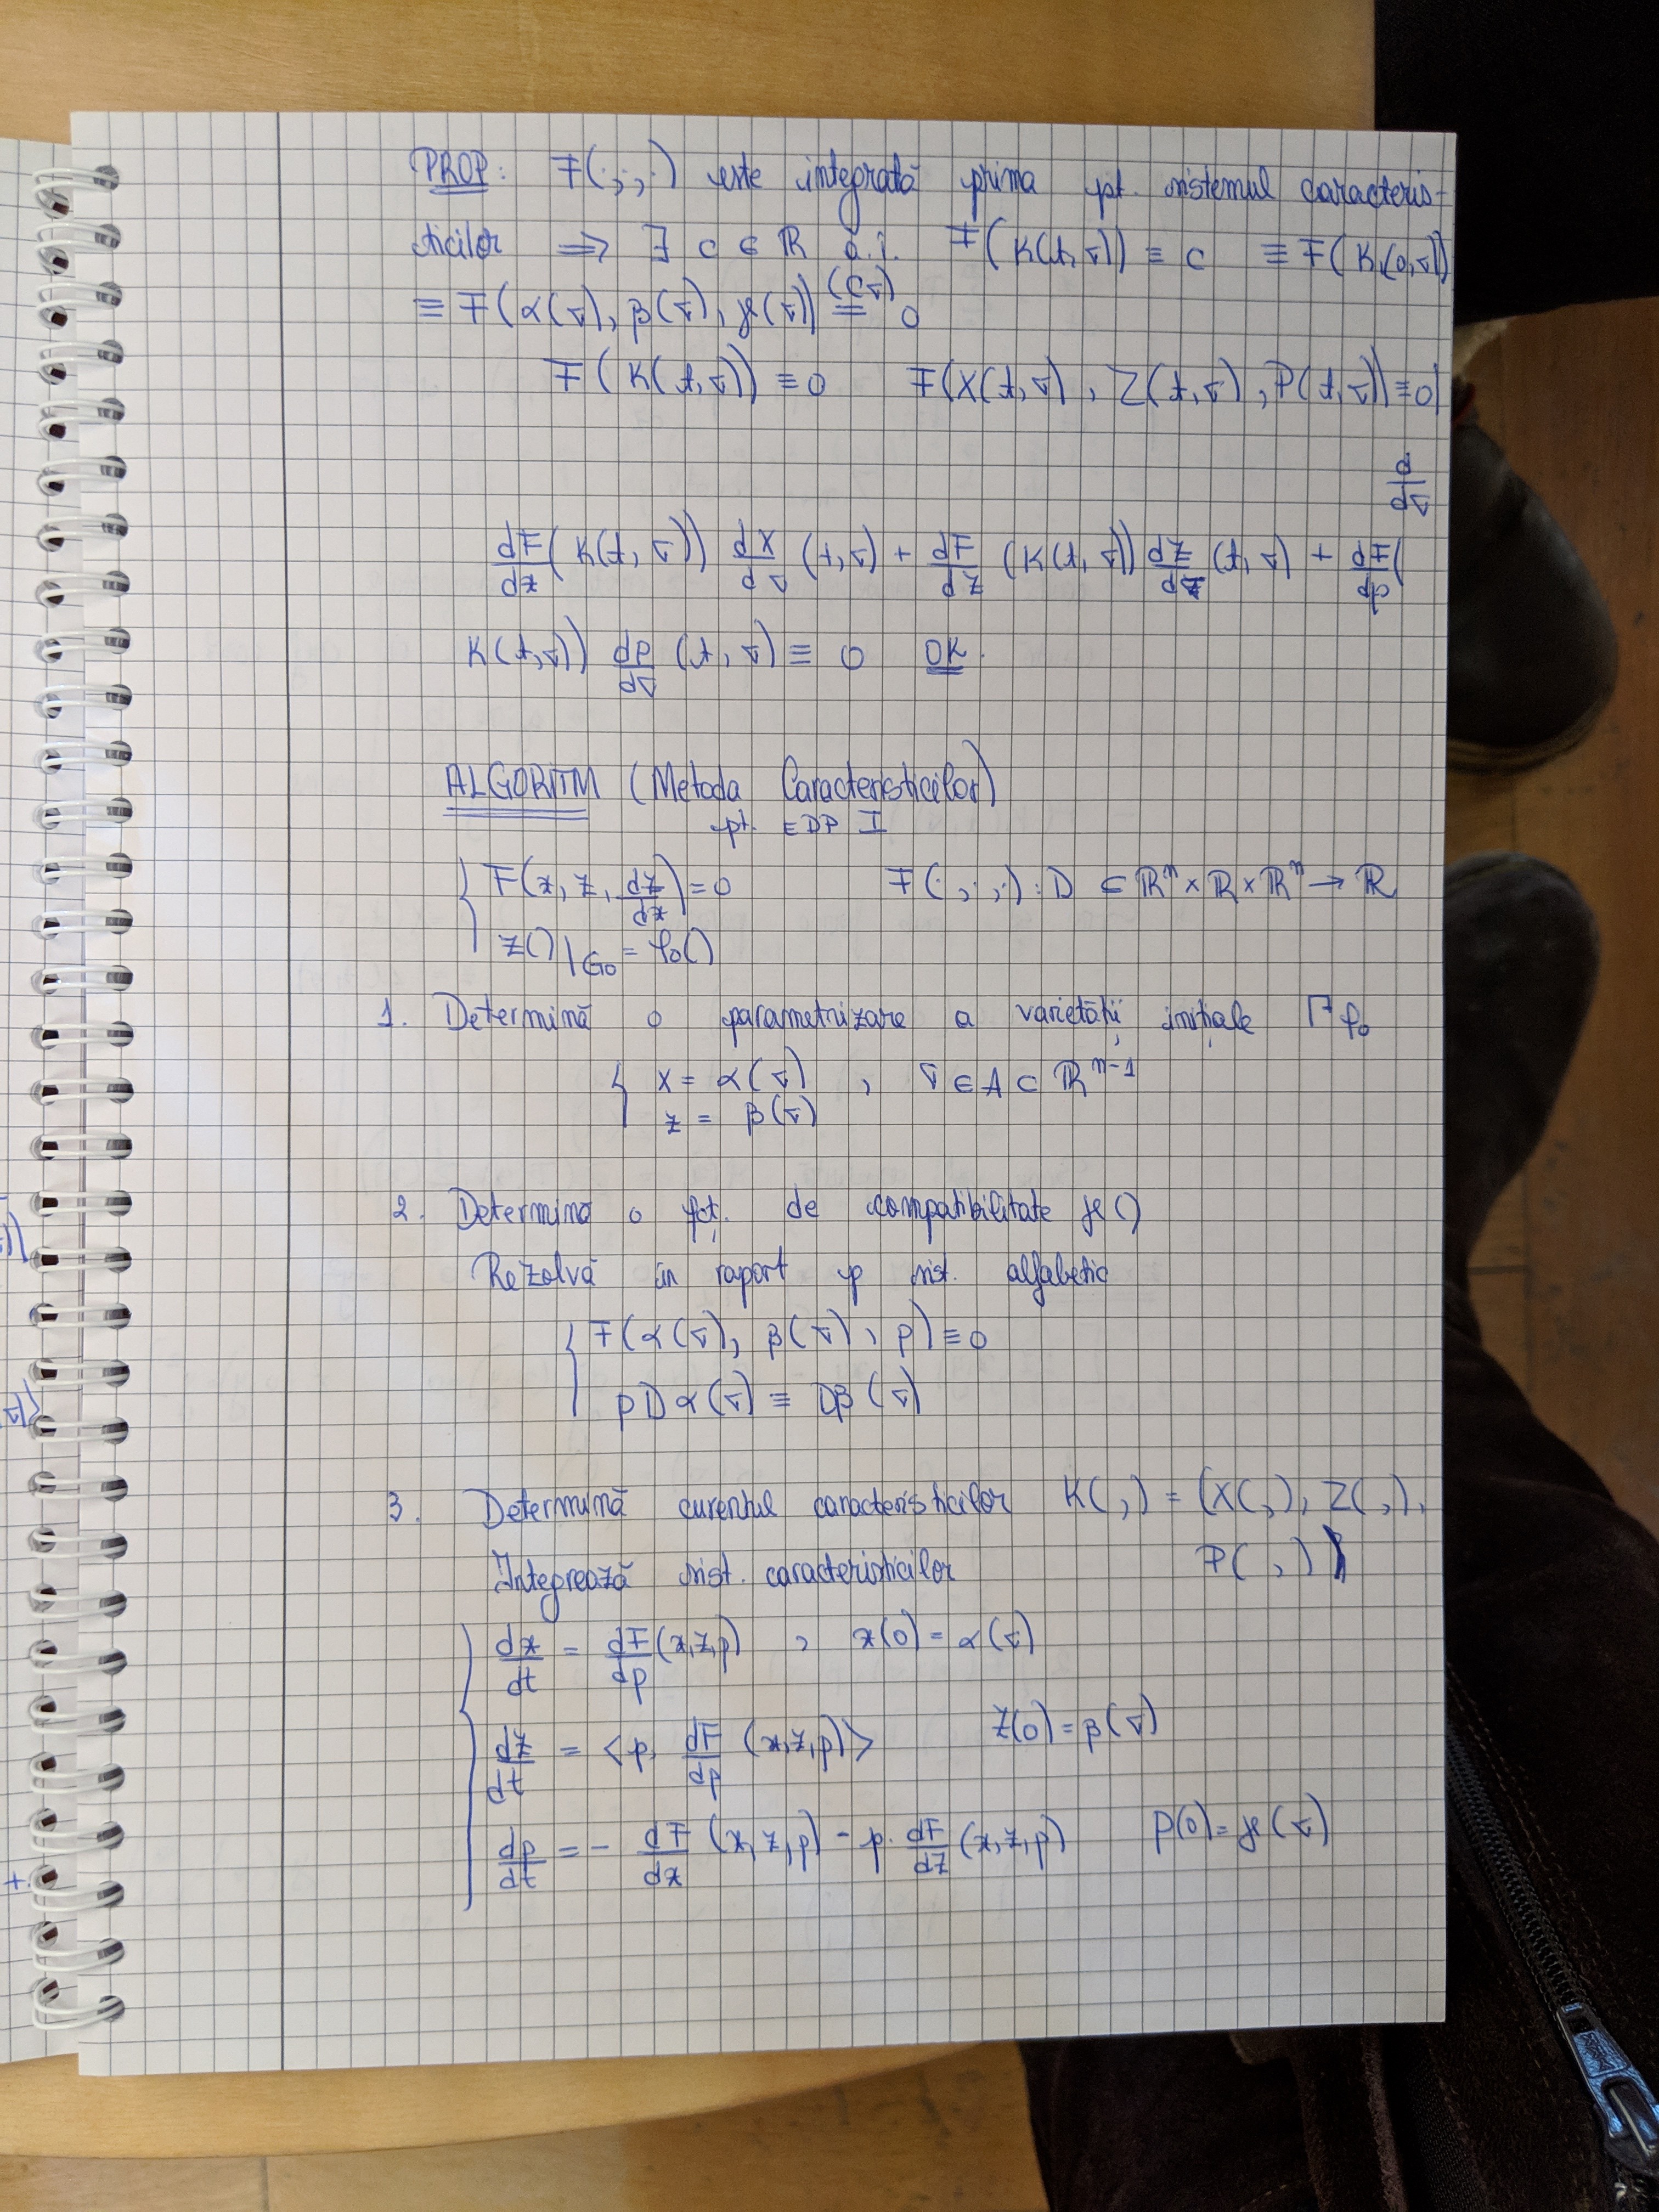 PROP: F(·,·,·) este integrată prima pt. sistemul caracteris-
ticilor ⟹ ∃ c ∈ ℝ a.î. F(K(t,σ)) ≡ c ≡ F(K(0,σ))
≡ F(α(σ), β(σ), γ(σ)) (CT)≡ 0
F(K(t,σ)) ≡ 0 F(X(t,σ), Z(t,σ), P(t,σ)) ≡ 0 |
d/dσ
dF/dx (K(t,σ)) dX/dσ (t,σ) + dF/dz (K(t,σ)) dZ/dσ (t,σ) + dF/dp (
K(t,σ)) dP/dσ (t,σ) ≡ 0 OK.
ALGORITM (Metoda Caracteristicilor)
pt. EDP I
{ F(x, z, dz/dx) = 0 F(·,·,·): D ⊂ ℝⁿ × ℝ × ℝⁿ → ℝ
z()|G₀ = φ₀()
1. Determină o parametrizare a varietății inițiale Γφ₀
{ x = α(σ) , σ ∈ A ⊂ ℝⁿ⁻¹
z = β(σ)
2. Determină o fct. de compatibilitate γ()
Rezolvă în raport p sist. alfabetic
{ F(α(σ), β(σ), p) ≡ 0
p Dα(σ) ≡ Dβ(σ)
3. Determină curentul caracteristicilor K(,) = (X(,), Z(,),
Integrează sist. caracteristicilor P(,))
{ dx/dt = dF/dp (x,z,p) , x(0) = α(σ)
dz/dt = <p, dF/dp (x,z,p)> z(0) = β(σ)
dp/dt = - dF/dx (x,z,p) - p · dF/dz (x,z,p) p(0) = γ(σ)